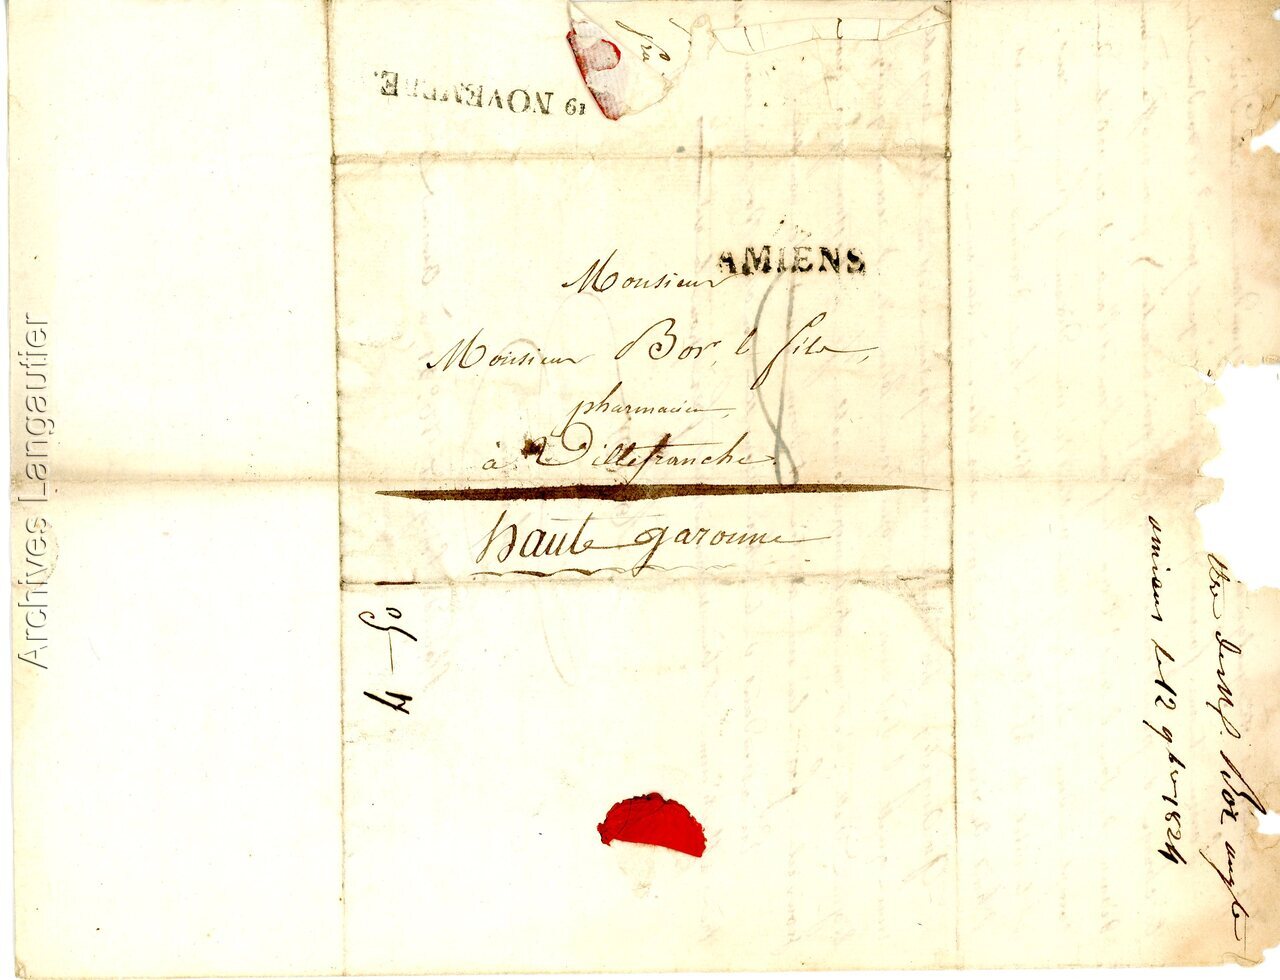 19 NOVEMBRE.
AMIENS
Monsieur
Monsieur Bor, le fils,
pharmacien,
à Villefranche.
haute garonne
50 — 4
Bor
amiens le 12 9bre 1824
Archives Langautier